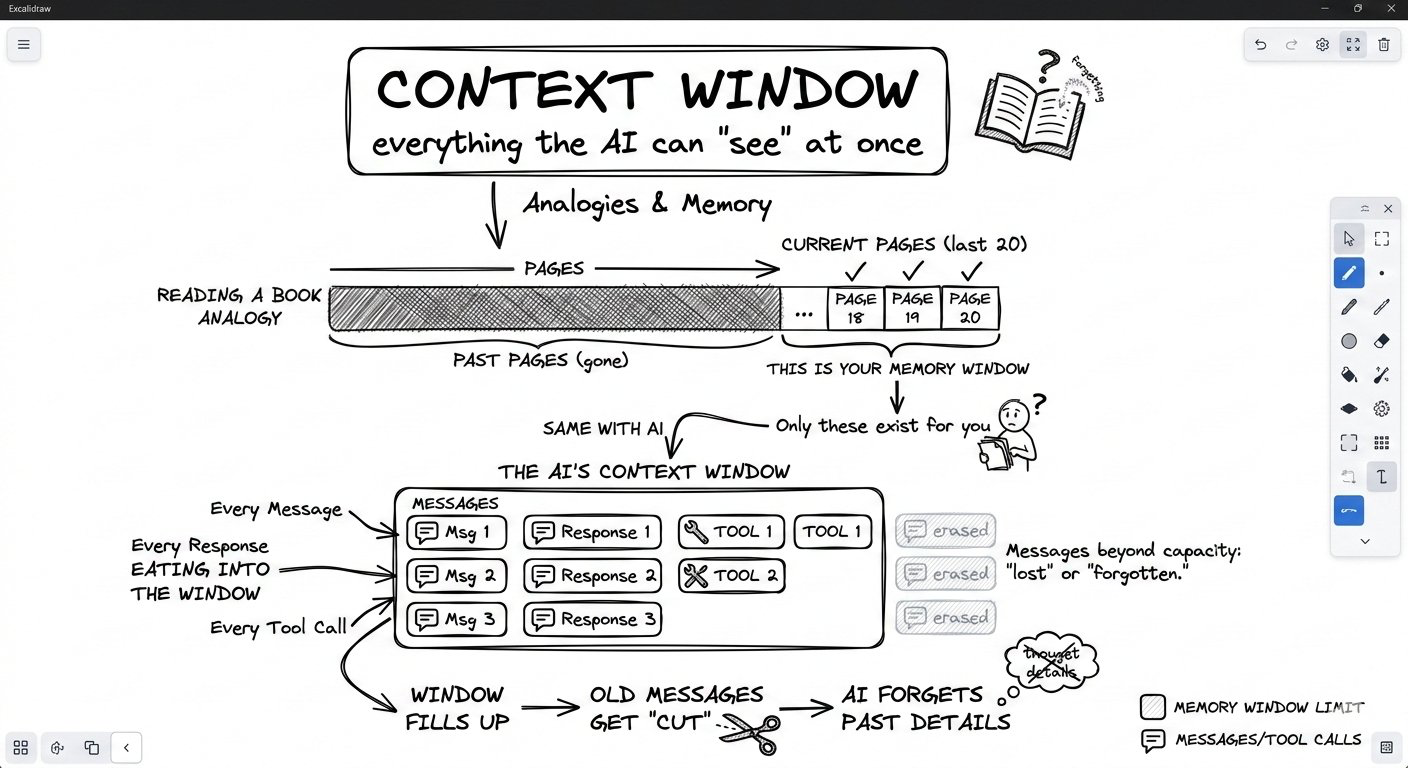 Excalidraw
CONTEXT WINDOW
everything the AI can "see" at once
?
forgetting
Analogies & Memory
CURRENT PAGES (last 20)
PAGES
READING A BOOK
ANALOGY
...
PAGE
18
PAGE
19
PAGE
20
PAST PAGES (gone)
THIS IS YOUR MEMORY WINDOW
Only these exist for you
?
SAME WITH AI
THE AI'S CONTEXT WINDOW
MESSAGES
Every Message
Every Response
EATING INTO
THE WINDOW
Every Tool Call
Msg 1
Response 1
TOOL 1
TOOL 1
erased
Msg 2
Response 2
TOOL 2
erased
Msg 3
Response 3
erased
Messages beyond capacity:
"lost" or "forgotten."
details
WINDOW
FILLS UP
OLD MESSAGES
GET "CUT"
AI FORGETS
PAST DETAILS
MEMORY WINDOW LIMIT
MESSAGES/TOOL CALLS